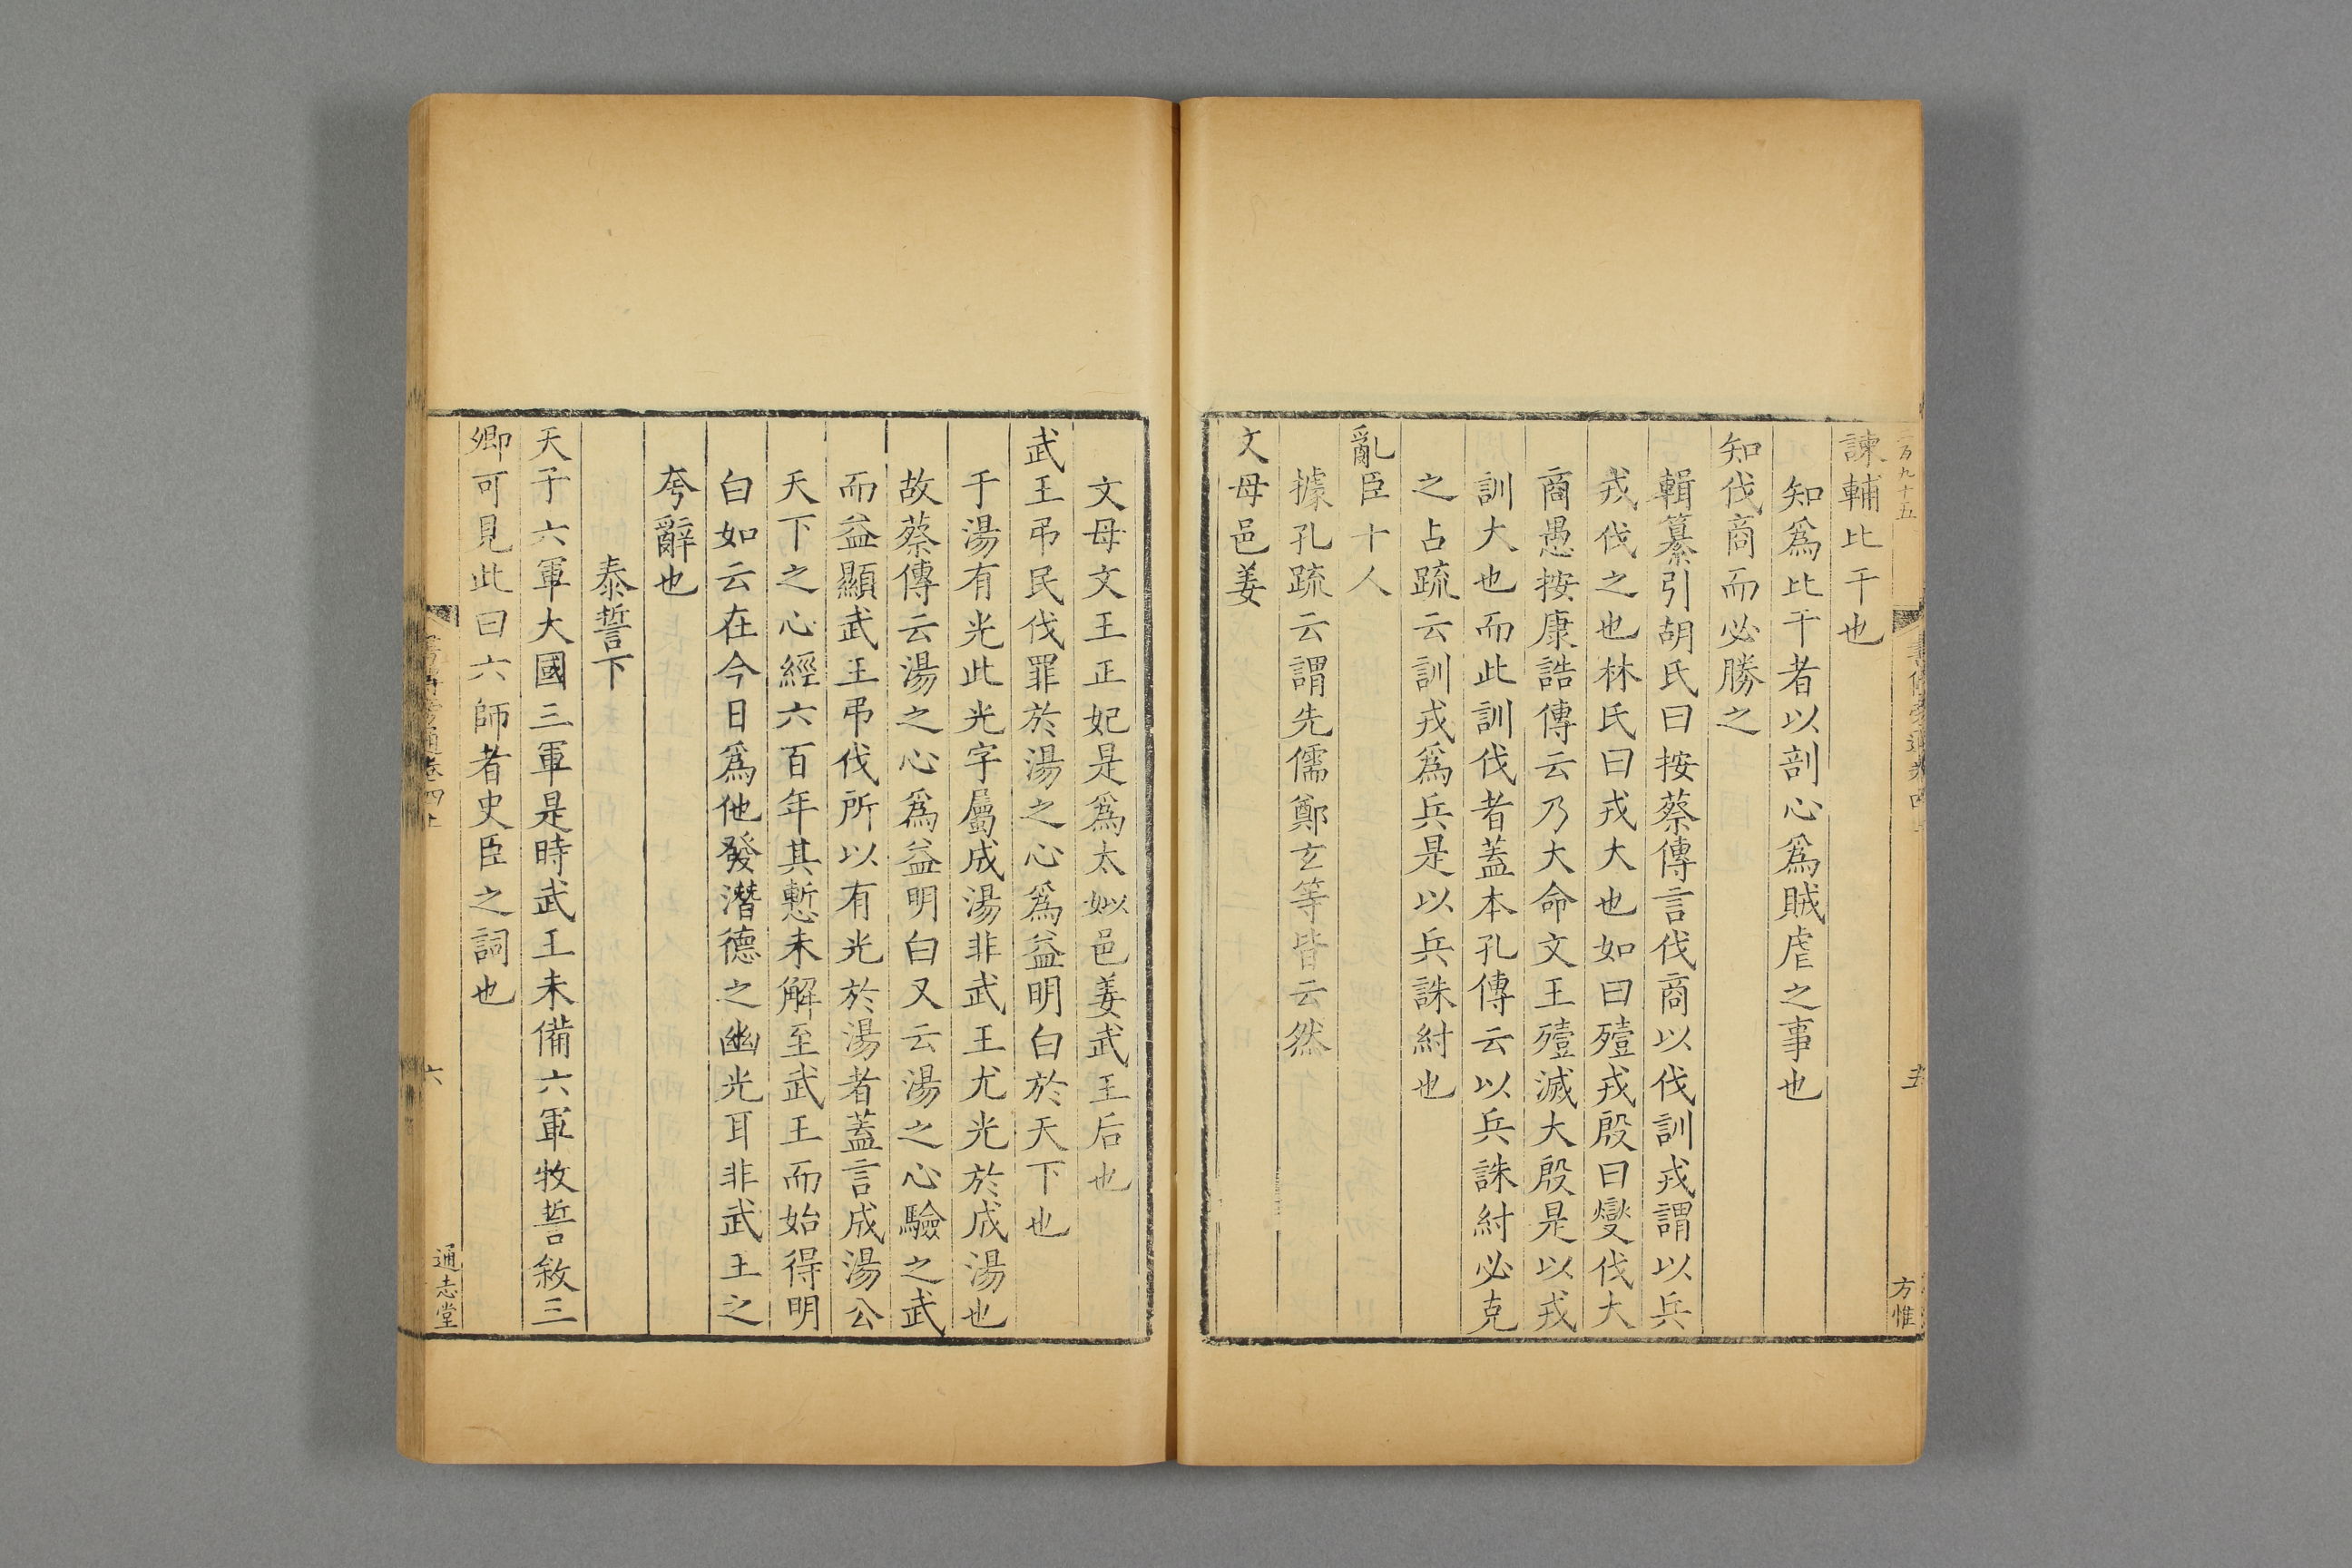 諫輔比干也
知爲比干者以剖心爲賊虐之事也
知伐商而必勝之
輯纂引胡氏曰按蔡傳言伐商以伐訓戎謂以兵
戎伐之也林氏曰戎大也如曰殪戎殷曰燮伐大
商愚按康誥傳云乃大命文王殪滅大殷是以戎
訓大也而此訓伐者蓋本孔傳云以兵誅紂必克
之占疏云訓戎爲兵是以兵誅紂也
亂臣十人
據孔疏云謂先儒鄭玄等皆云然
文母邑姜
五
方惟
文母文王正妃是爲太姒邑姜武王后也
武王弔民伐罪於湯之心爲益明白於天下也
于湯有光此光字屬成湯非武王尤光於成湯也
故蔡傳云湯之心爲益明白又云湯之心驗之武
而益顯武王弔伐所以有光於湯者蓋言成湯公
天下之心經六百年其慙未解至武王而始得明
白如云在今日爲他發潛德之幽光耳非武王之
夸辭也
泰誓下
天子六軍大國三軍是時武王未備六軍牧誓敘三
卿可見此曰六師者史臣之詞也
六
通志堂